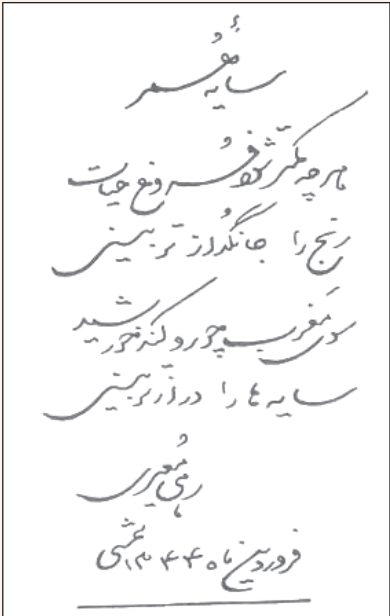 سایهٔ عمر
هر چه کمتر شود فروغ حیات
رنج را جانگدازتر بینی
سوی مغرب چو رو کند خورشید
سایه ها را درازتر بینی
رهی معیری
فروردین ماه ۱۳۴۴ شمسی